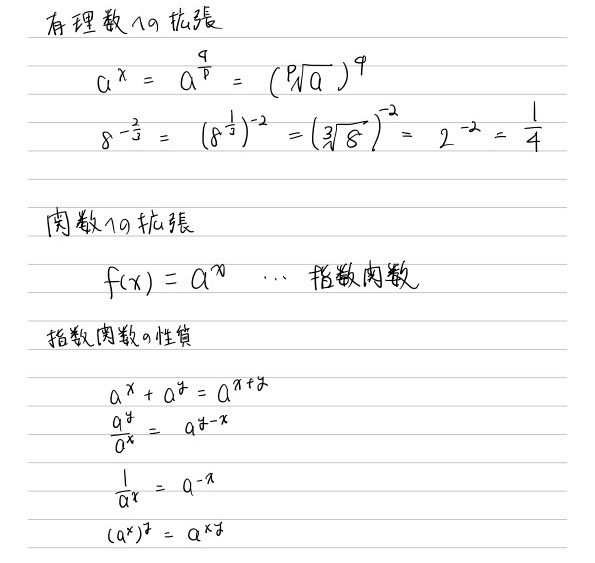 有理数への拡張
a^x = a^{q/p} = (^p√a)^q
8^{-2/3} = (8^{1/3})^{-2} = (^3√8)^{-2} = 2^{-2} = 1/4
関数への拡張
f(x) = a^x … 指数関数
指数関数の性質
a^x + a^y = a^{x+y}
a^y/a^x = a^{y-x}
1/a^x = a^{-x}
(a^x)^y = a^{xy}